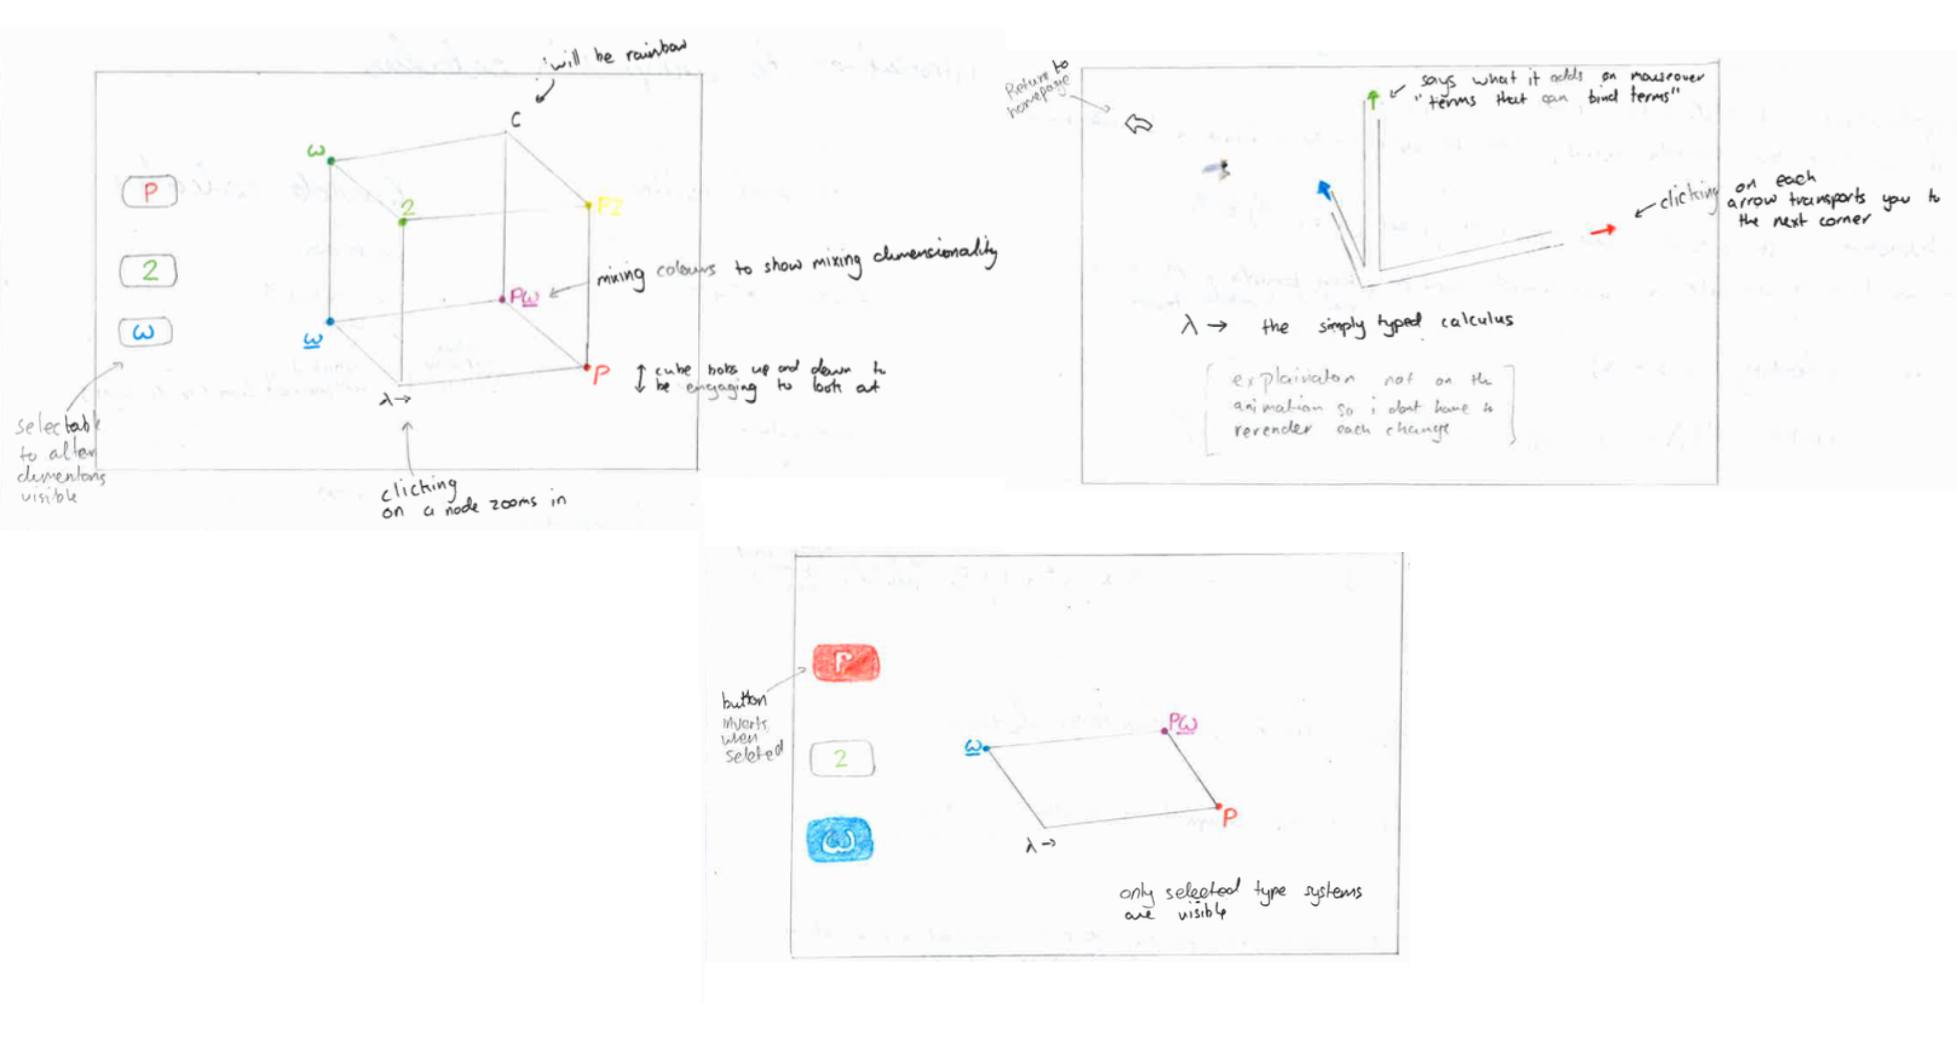 will be rainbow
C
ω
P
2
P2
2
mixing colours to show mixing dimensionality
Pω
ω
ω
P
cube bobs up and down to
be engaging to look at
λ→
selectable
to alter
dimentions
visible
clicking
on a node zooms in
Return to
homepage
says what it adds on mouseover
"terms that can bind terms"
clicking on each
arrow transports you to
the next corner
λ→ the simply typed calculus
explaination not on the
animation so i dont have to
rerender each change
P
button
inverts
when
seleted
Pω
ω
2
P
ω
λ→
only selected type systems
are visible